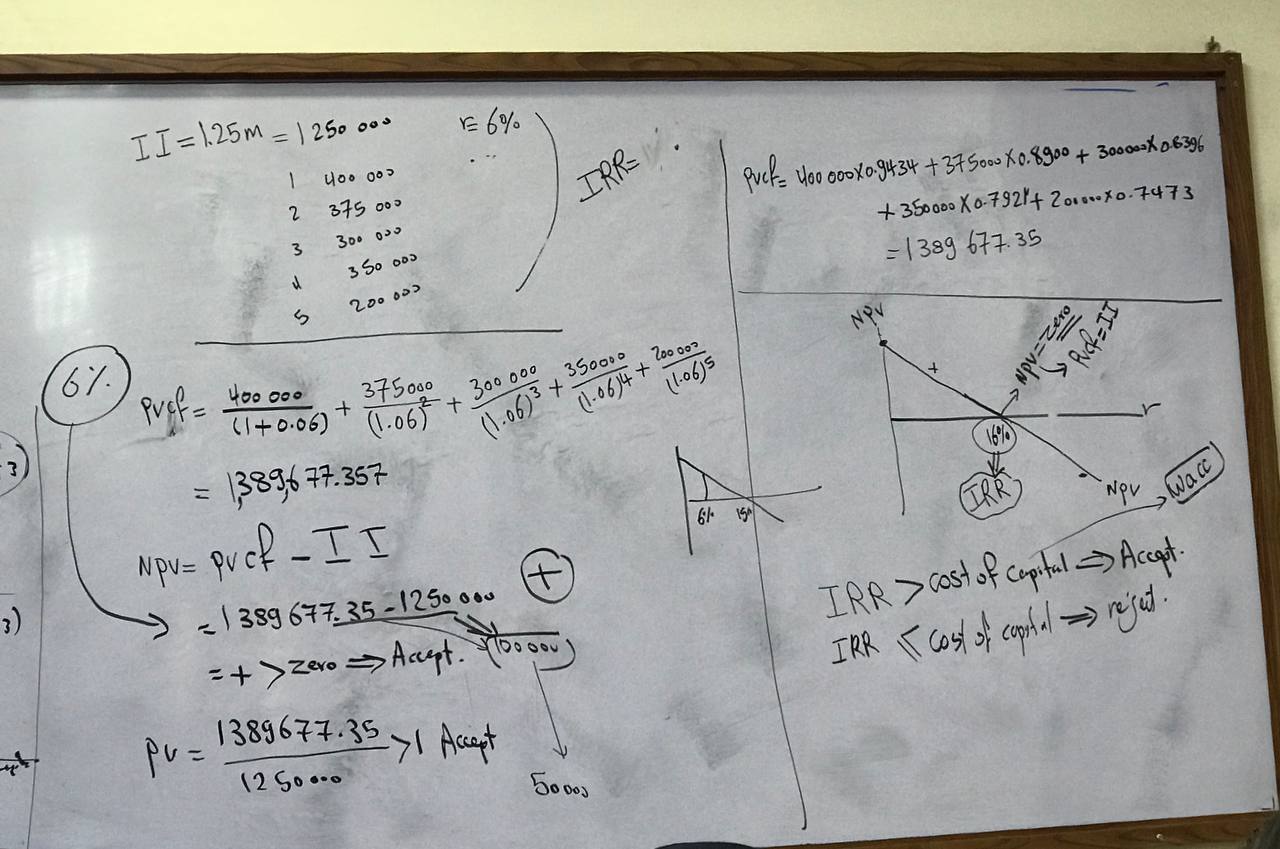 II = 1.25m = 1 250 000 r = 6%
1 400 000
2 375 000
3 300 000
4 350 000
5 200 000
IRR =
6%
pvcf = 400 000/(1+0.06) + 375000/(1.06)^2 + 300 000/(1.06)^3 + 350000/(1.06)^4 + 200 000/(1.06)^5
= 1,389,677.357
Npv = pvcf - II
= 1 389 677.35 - 1250 000
+
= + > zero ⇒ Accept. (100 000)
pv = 1389677.35/1250000 > 1 Accept
50000
3)
3)
pvcf = 400 000 X 0.9434 + 375000 X 0.8900 + 300000 X 0.8396
+ 350000 X 0.7921 + 200000 X 0.7473
= 1 389 677.35
Npv
+
Npv = Zero
→ pvcf = II
r
16%
IRR
Npv
wacc
6% 15%
IRR > cost of capital ⇒ Accept.
IRR ≤ cost of capital ⇒ reject.